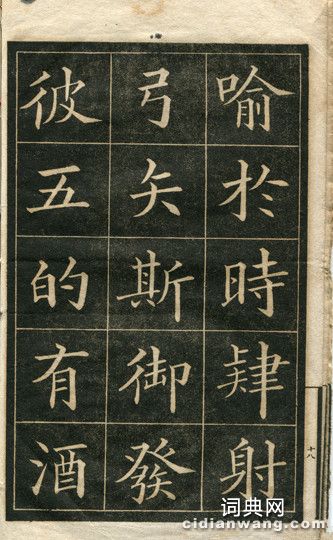 喻於時肆射
弓矢斯御發
彼五的有酒
十八
词典网
cidianwang.com